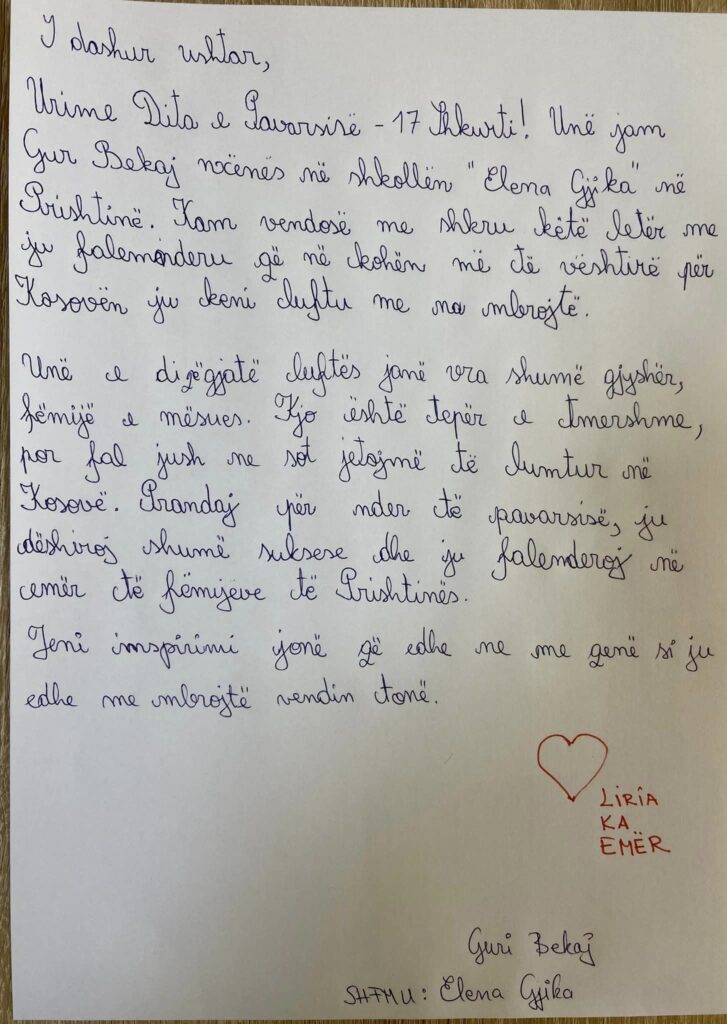 I dashur ushtar,
Urime Dita e Pavarsisë - 17 Shkurti! Unë jam
Gur Bekaj nxënës në shkollën "Elena Gjika" në
Prishtinë. Kam vendosë me shkru këtë letër me
ju falemenderu që në kohën më të vështirë për
Kosovën ju keni luftu me na mbrojtë.
Unë e di që gjatë luftës janë vra shumë gjyshër,
fëmijë e mësues. Kjo është tepër e tmershme,
por fal jush ne sot jetojmë të lumtur në
Kosovë. Prandaj për nder të pavarsisë, ju
dëshiroj shumë suksese dhe ju falenderoj në
emër të fëmijëve të Prishtinës.
Jeni inspirimi jonë që edhe ne me qenë si ju
edhe me mbrojtë vendin tonë.
LIRIA
KA
EMËR
Guri Bekaj
SHFMU: Elena Gjika